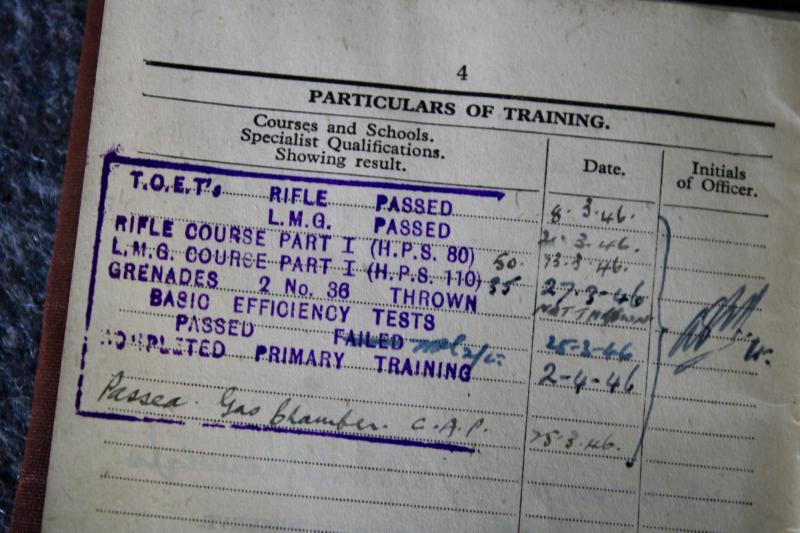 4
PARTICULARS OF TRAINING.
Courses and Schools.
Specialist Qualifications.
Showing result.
Date.
Initials
of Officer.
T.O.E.T's RIFLE PASSED 8.3.46.
L.M.G. PASSED 3.46.
RIFLE COURSE PART I (H.P.S. 80) 50. 3.46.
L.M.G. COURSE PART I (H.P.S. 110) 85 27-3-46
GRENADES 2 No. 36 THROWN NOT THROWN
BASIC EFFICIENCY TESTS
PASSED FAILED 25-3-46
COMPLETED PRIMARY TRAINING 2-4-46
Passed Gas Chamber. C.A.P. 25.3.46.